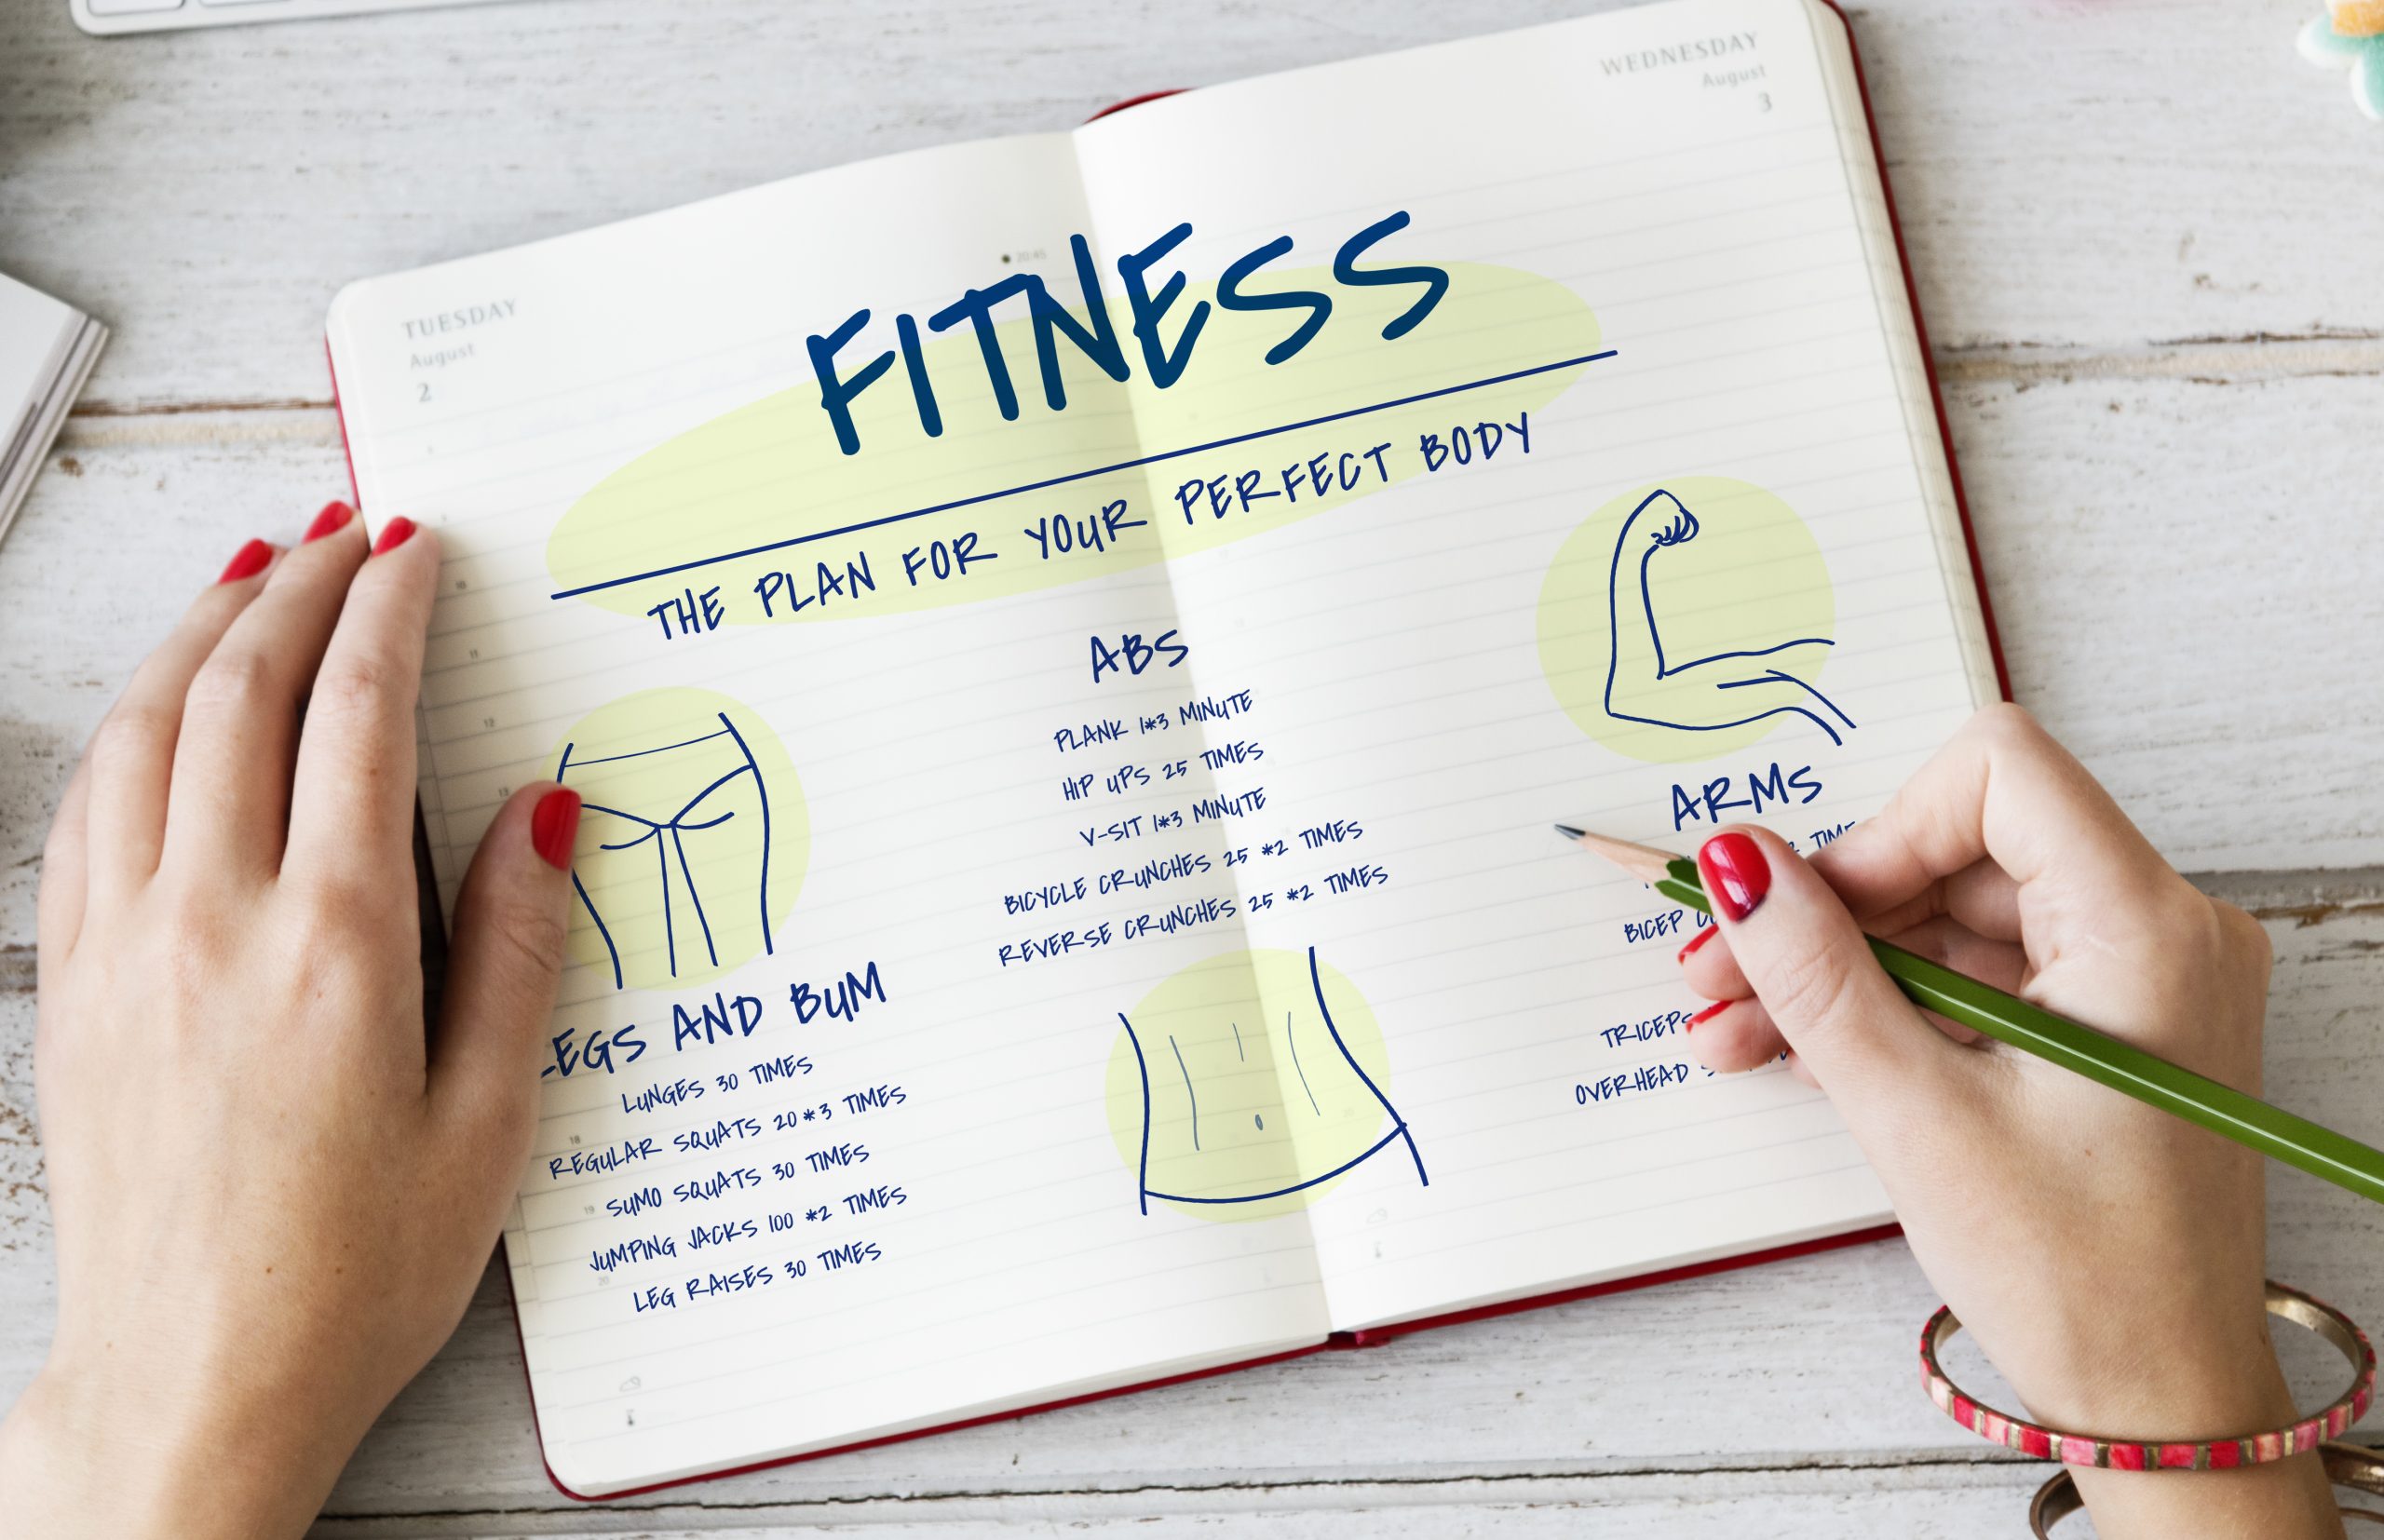 TUESDAY
August
2
WEDNESDAY
August
3
20:45
FITNESS
THE PLAN FOR YOUR PERFECT BODY
LEGS AND BUM
LUNGES 30 TIMES
REGULAR SQUATS 20*3 TIMES
SUMO SQUATS 30 TIMES
JUMPING JACKS 100 *2 TIMES
LEG RAISES 30 TIMES
ABS
PLANK 1*3 MINUTE
HIP UPS 25 TIMES
V-SIT 1*3 MINUTE
BICYCLE CRUNCHES 25 *2 TIMES
REVERSE CRUNCHES 25 *2 TIMES
ARMS
BICEP
TRICEPS
OVERHEAD
10
11
12
13
18
19
20